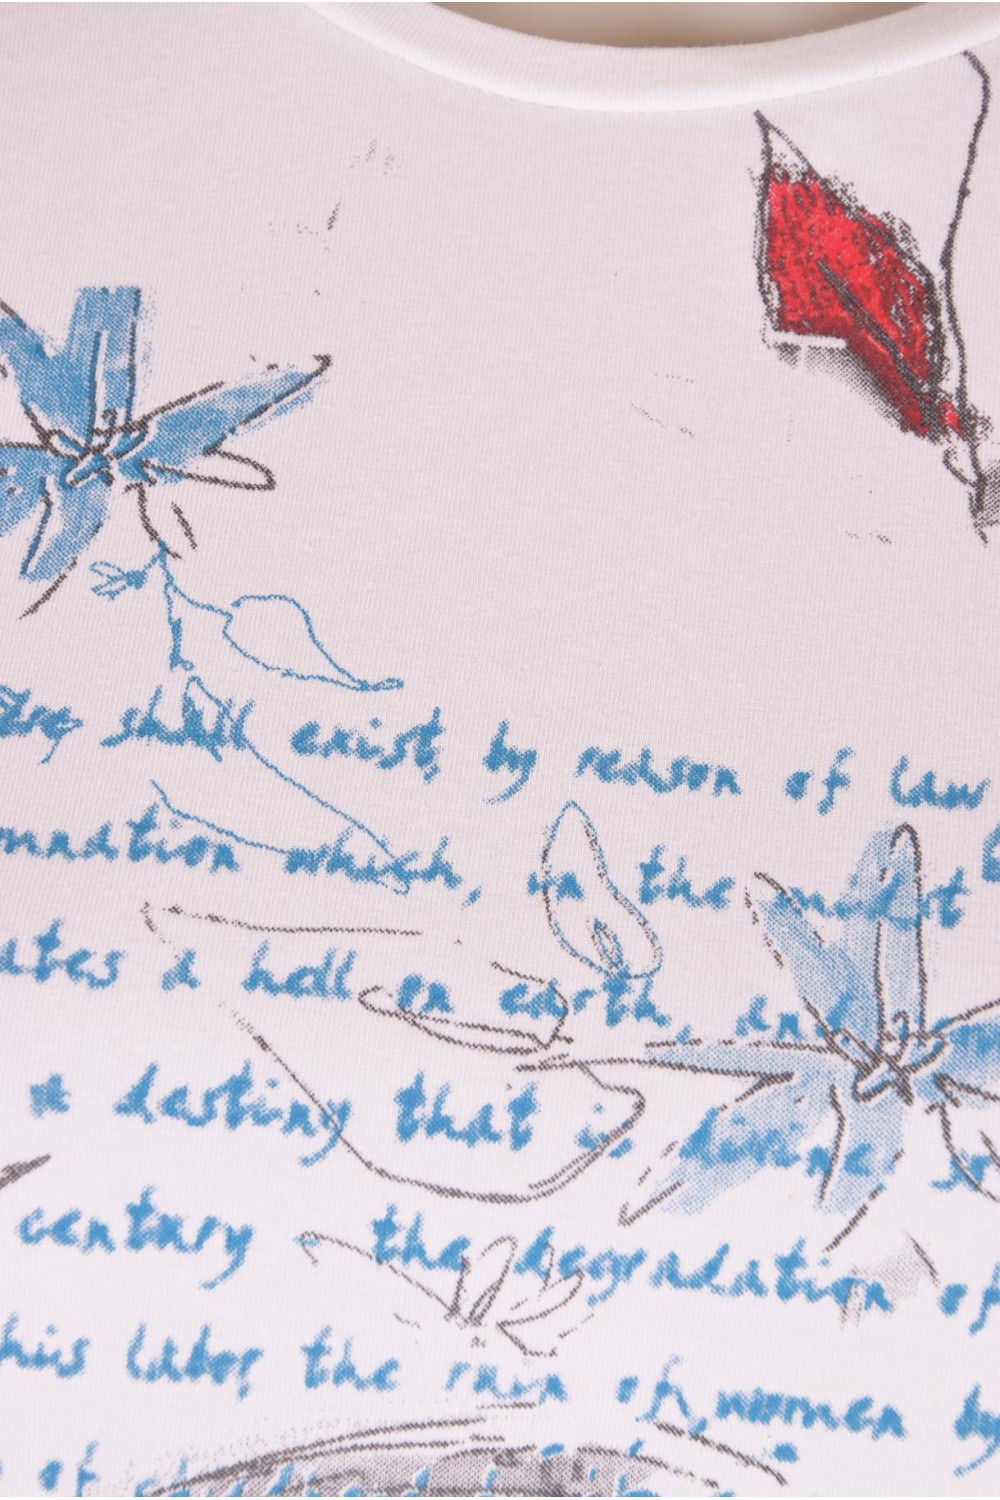 shall exist, by reason of law
mnation which, in the midst
ates a hell on earth, and
a destiny that is divine
century the degradation of
his labor, the ruin of women by
of